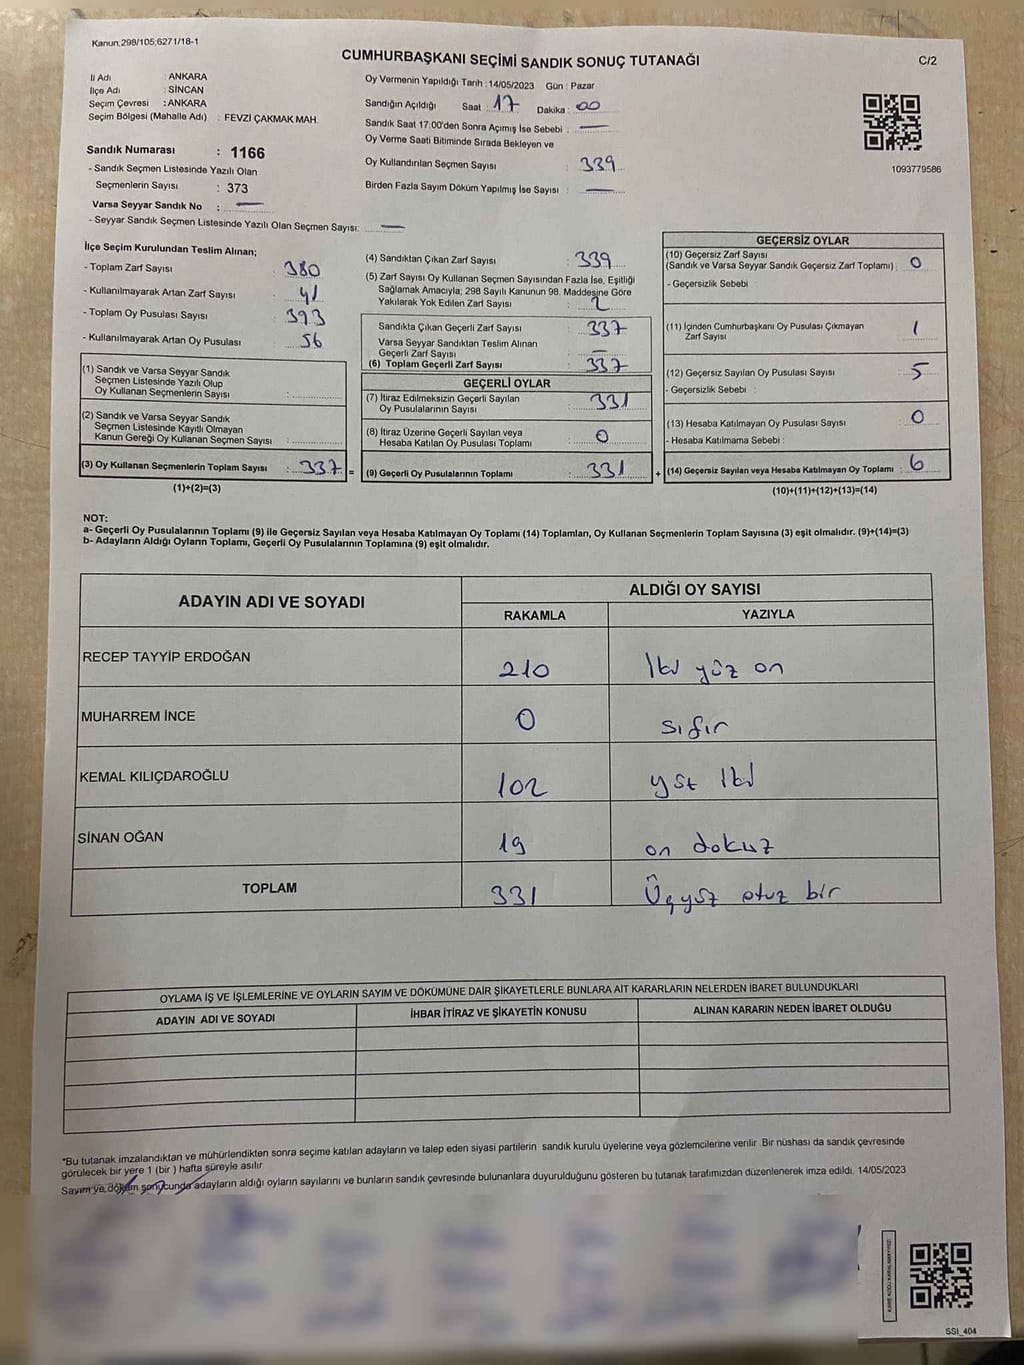 Kanun;298/105;6271/18-1
CUMHURBAŞKANI SEÇİMİ SANDIK SONUÇ TUTANAĞI
C/2
İl Adı : ANKARA
İlçe Adı : SİNCAN
Seçim Çevresi : ANKARA
Seçim Bölgesi (Mahalle Adı) : FEVZİ ÇAKMAK MAH.
Sandık Numarası : 1166
- Sandık Seçmen Listesinde Yazılı Olan
Seçmenlerin Sayısı : 373
Varsa Seyyar Sandık No : —
- Seyyar Sandık Seçmen Listesinde Yazılı Olan Seçmen Sayısı: —
Oy Vermenin Yapıldığı Tarih :14/05/2023 Gün : Pazar
Sandığın Açıldığı Saat : 17 Dakika : 00
Sandık Saat 17:00'den Sonra Açımış İse Sebebi : —
Oy Verme Saati Bitiminde Sırada Bekleyen ve
Oy Kullandırılan Seçmen Sayısı : 339
Birden Fazla Sayım Döküm Yapılmış İse Sayısı : —
1093779586
İlçe Seçim Kurulundan Teslim Alınan;
- Toplam Zarf Sayısı : 380
- Kullanılmayarak Artan Zarf Sayısı : 41
- Toplam Oy Pusulası Sayısı : 393
- Kullanılmayarak Artan Oy Pusulası : 56
(1) Sandık ve Varsa Seyyar Sandık
Seçmen Listesinde Yazılı Olup
Oy Kullanan Seçmenlerin Sayısı :
(2) Sandık ve Varsa Seyyar Sandık
Seçmen Listesinde Kayıtlı Olmayan
Kanun Gereği Oy Kullanan Seçmen Sayısı :
(3) Oy Kullanan Seçmenlerin Toplam Sayısı : 337 =
(1)+(2)=(3)
(4) Sandıktan Çıkan Zarf Sayısı : 339
(5) Zarf Sayısı Oy Kullanan Seçmen Sayısından Fazla İse, Eşitliği
Sağlamak Amacıyla; 298 Sayılı Kanunun 98. Maddesine Göre
Yakılarak Yok Edilen Zarf Sayısı : 2
Sandıkta Çıkan Geçerli Zarf Sayısı : 337
Varsa Seyyar Sandıktan Teslim Alınan
Geçerli Zarf Sayısı : —
(6) Toplam Geçerli Zarf Sayısı : 337
GEÇERLİ OYLAR
(7) İtiraz Edilmeksizin Geçerli Sayılan
Oy Pusulalarının Sayısı : 331
(8) İtiraz Üzerine Geçerli Sayılan veya
Hesaba Katılan Oy Pusulası Toplamı : 0
(9) Geçerli Oy Pusulalarının Toplamı : 331 +
GEÇERSİZ OYLAR
(10) Geçersiz Zarf Sayısı
(Sandık ve Varsa Seyyar Sandık Geçersiz Zarf Toplamı) : 0
- Geçersizlik Sebebi :
(11) İçinden Cumhurbaşkanı Oy Pusulası Çıkmayan
Zarf Sayısı : 1
(12) Geçersiz Sayılan Oy Pusulası Sayısı : 5
- Geçersizlik Sebebi :
(13) Hesaba Katılmayan Oy Pusulası Sayısı : 0
- Hesaba Katılmama Sebebi :
(14) Geçersiz Sayılan veya Hesaba Katılmayan Oy Toplamı : 6
(10)+(11)+(12)+(13)=(14)
NOT:
a- Geçerli Oy Pusulalarının Toplamı (9) ile Geçersiz Sayılan veya Hesaba Katılmayan Oy Toplamı (14) Toplamları, Oy Kullanan Seçmenlerin Toplam Sayısına (3) eşit olmalıdır. (9)+(14)=(3)
b- Adayların Aldığı Oyların Toplamı, Geçerli Oy Pusulalarının Toplamına (9) eşit olmalıdır.
ADAYIN ADI VE SOYADI
ALDIĞI OY SAYISI
RAKAMLA YAZIYLA
RECEP TAYYİP ERDOĞAN 210 İki yüz on
MUHARREM İNCE 0 sıfır
KEMAL KILIÇDAROĞLU 102 yüz İki
SİNAN OĞAN 19 on dokuz
TOPLAM 331 Üçyüz otuz bir
OYLAMA İŞ VE İŞLEMLERİNE VE OYLARIN SAYIM VE DÖKÜMÜNE DAİR ŞİKAYETLERLE BUNLARA AİT KARARLARIN NELERDEN İBARET BULUNDUKLARI
ADAYIN ADI VE SOYADI İHBAR İTİRAZ VE ŞİKAYETİN KONUSU ALINAN KARARIN NEDEN İBARET OLDUĞU
*Bu tutanak imzalandıktan ve mühürlendikten sonra seçime katılan adayların ve talep eden siyasi partilerin sandık kurulu üyelerine veya gözlemcilerine verilir. Bir nüshası da sandık çevresinde
görülecek bir yere 1 (bir ) hafta süreyle asılır.
Sayım ve döküm sonucunda adayların aldığı oyların sayılarını ve bunların sandık çevresinde bulunanlara duyurulduğunu gösteren bu tutanak tarafımızdan düzenlenerek imza edildi. 14/05/2023
SSI_404